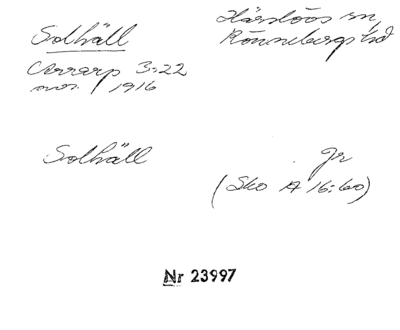 Solhäll
Härslövs sn,
Rönnebergs hd
Arrarp 3:22
1916
Solhäll
Jr
(Sko A 16:60)
Nr 23997